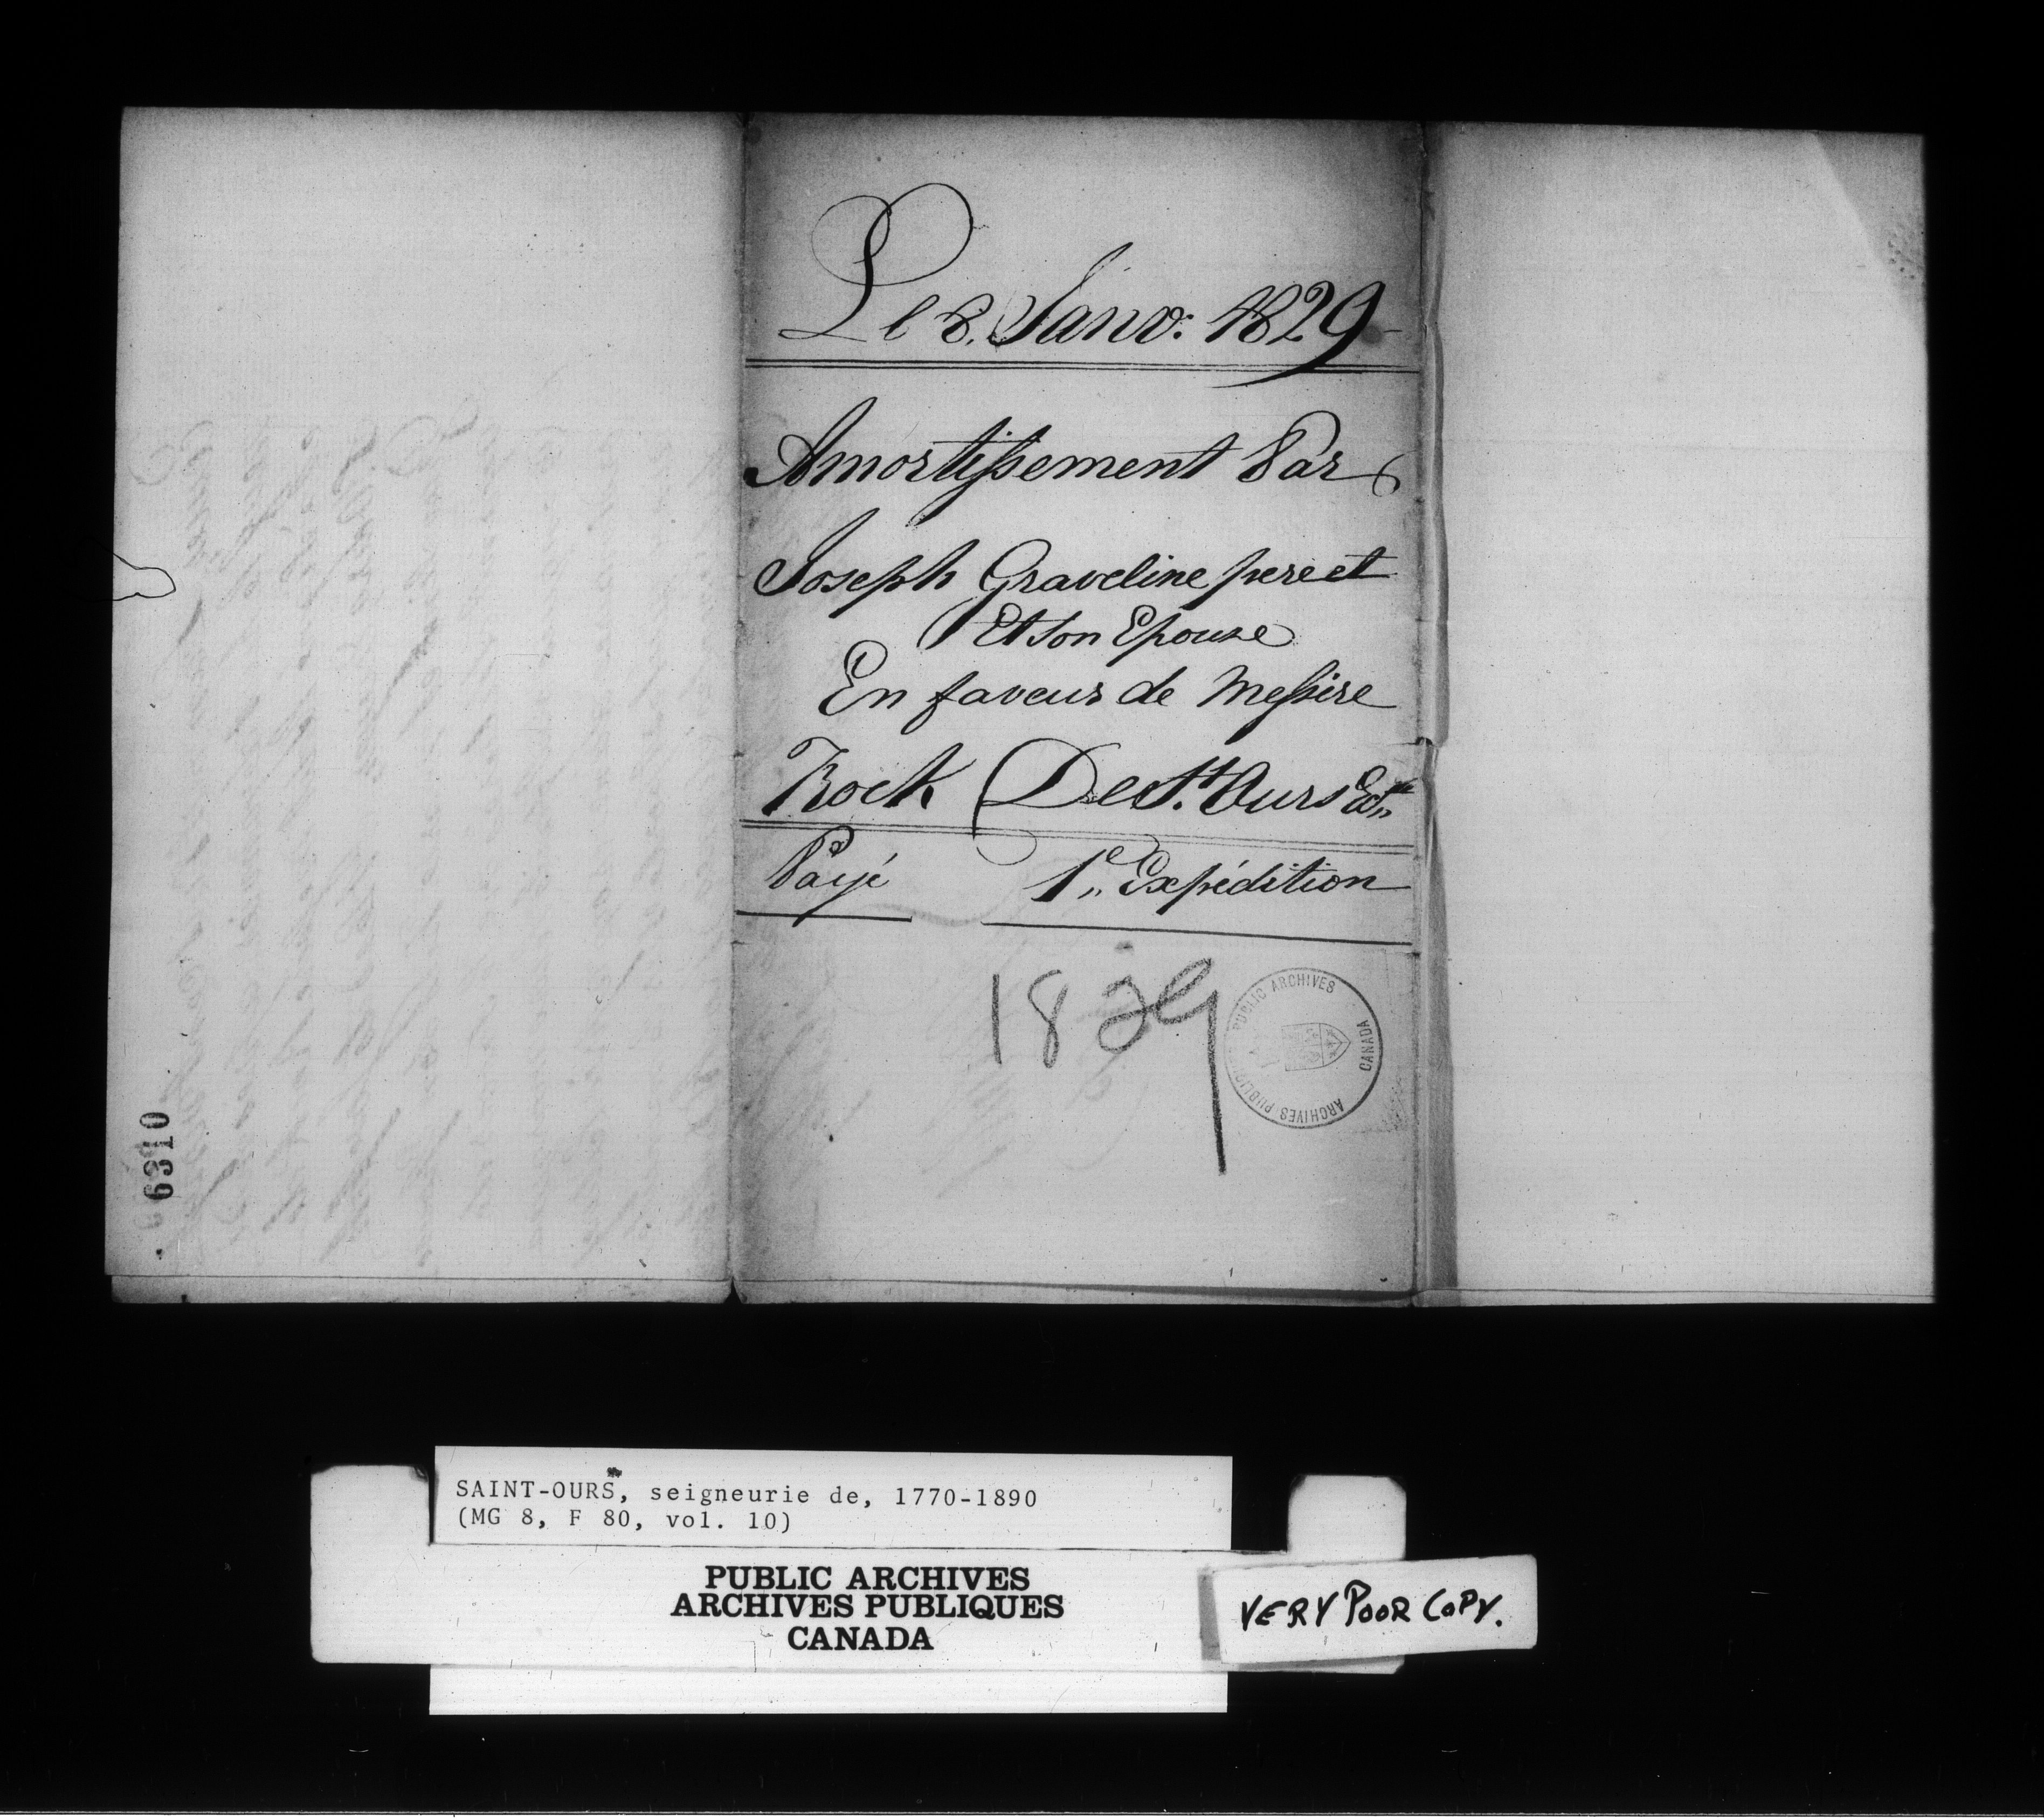 Le 8. Janv: 1829
Amortissement Par
Joseph Graveline pere et
Et son Epouse
En faveur de Messire
Rock De St. Ours
Payé 1e,, Expédition
1829
PUBLIC ARCHIVES
CANADA
ARCHIVES PUBLIQUES
6310
SAINT-OURS, seigneurie de, 1770-1890
(MG 8, F 80, vol. 10)
PUBLIC ARCHIVES
ARCHIVES PUBLIQUES
CANADA
VERY POOR COPY.